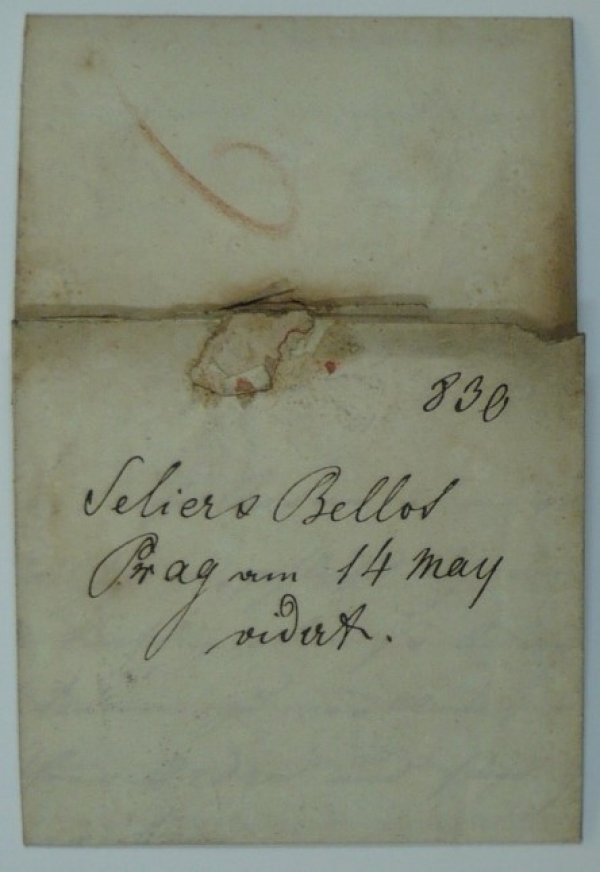 830
Seliers Bellot
Prag am 14 May
vidirt.